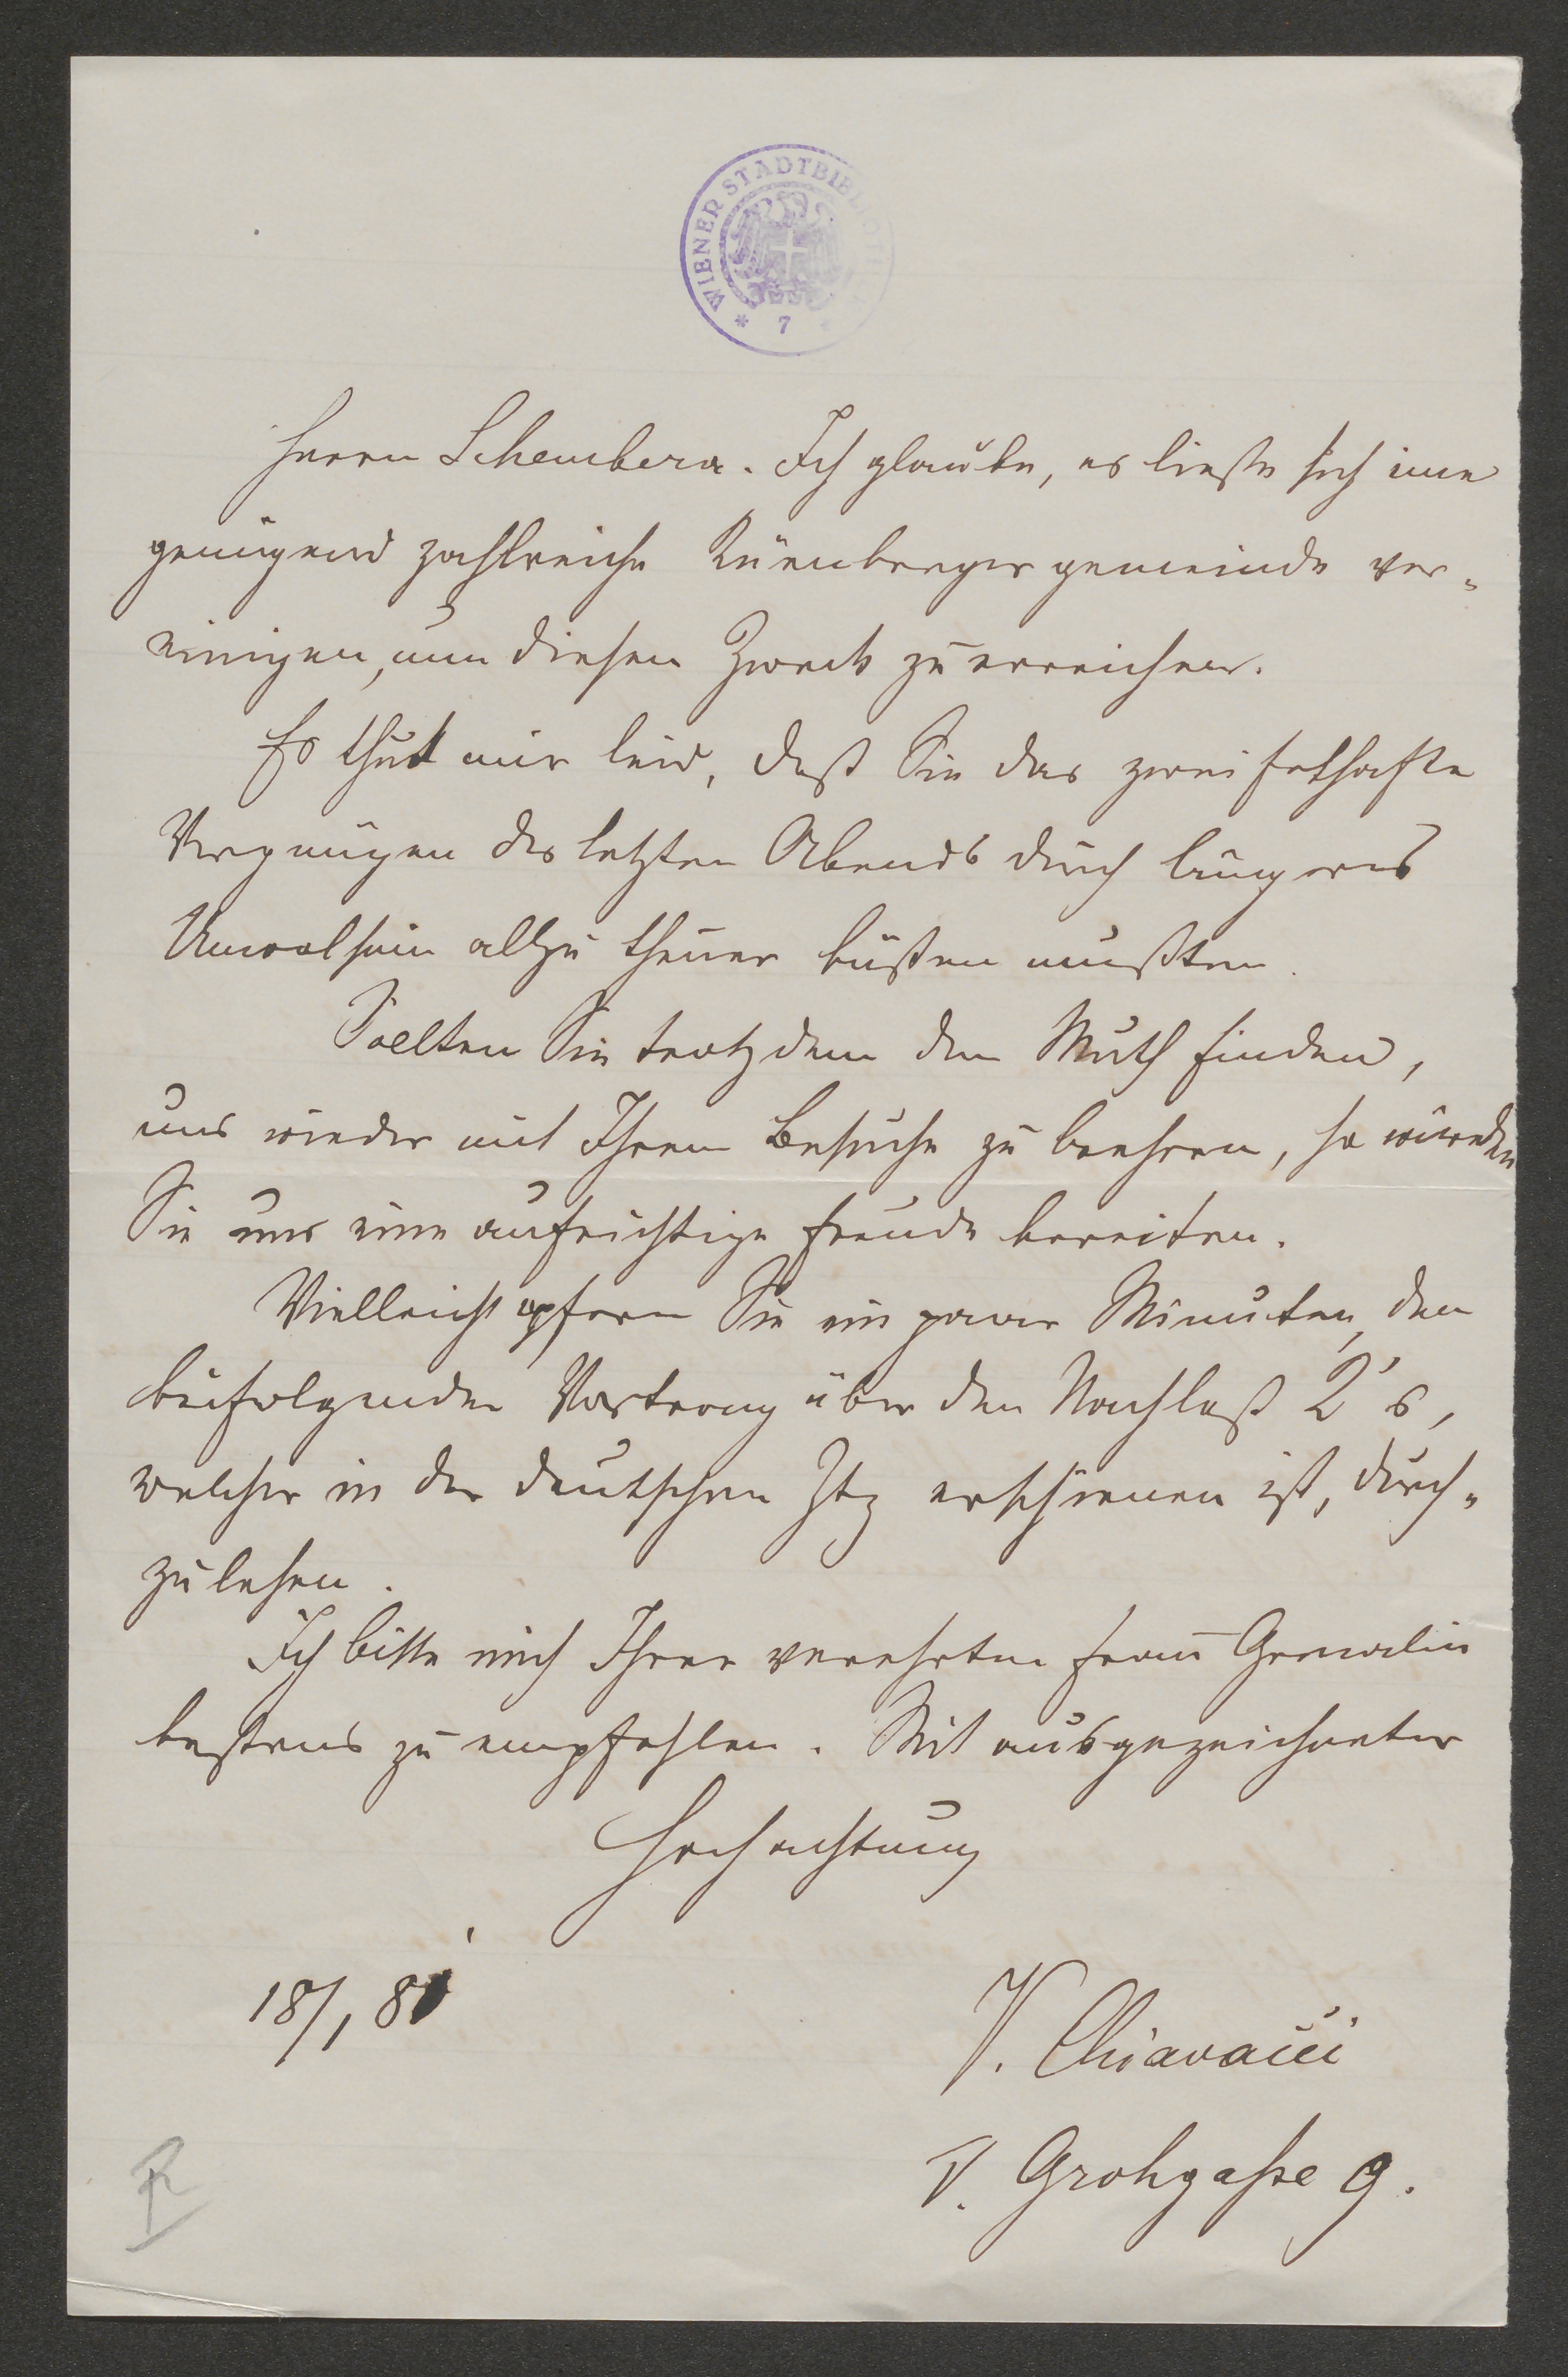 WIENER STADTBIBLIOTHEK
* 7 *
Herrn Schembera. Ich glaube, es ließe sich eine
genügend zahlreiche Kürnbergergemeinde ver-
einigen, um diesen Zweck zu erreichen.
Es thut mir leid, daß Sie das zweifelhafte
Vergnügen des letzten Abends durch längeres
Unwolsein allzu theuer büßen mußten.
Sollten Sie trotzdem den Muth finden,
uns wieder mit Ihrem Besuche zu beehren, so würden
Sie uns eine aufrichtige Freude bereiten.
Vielleicht opfern Sie ein paar Minuten, den
beifolgenden Vortrag über den Nachlaß K's,
welcher in der deutschen Ztg erschienen ist, durch-
zulesen.
Ich bitte mich Ihrer verehrten Frau Gemalin
bestens zu empfehlen. Mit ausgezeichneter
Hochachtung
18/1 81
V. Chiavacci
V. Grohgasse 9.
R